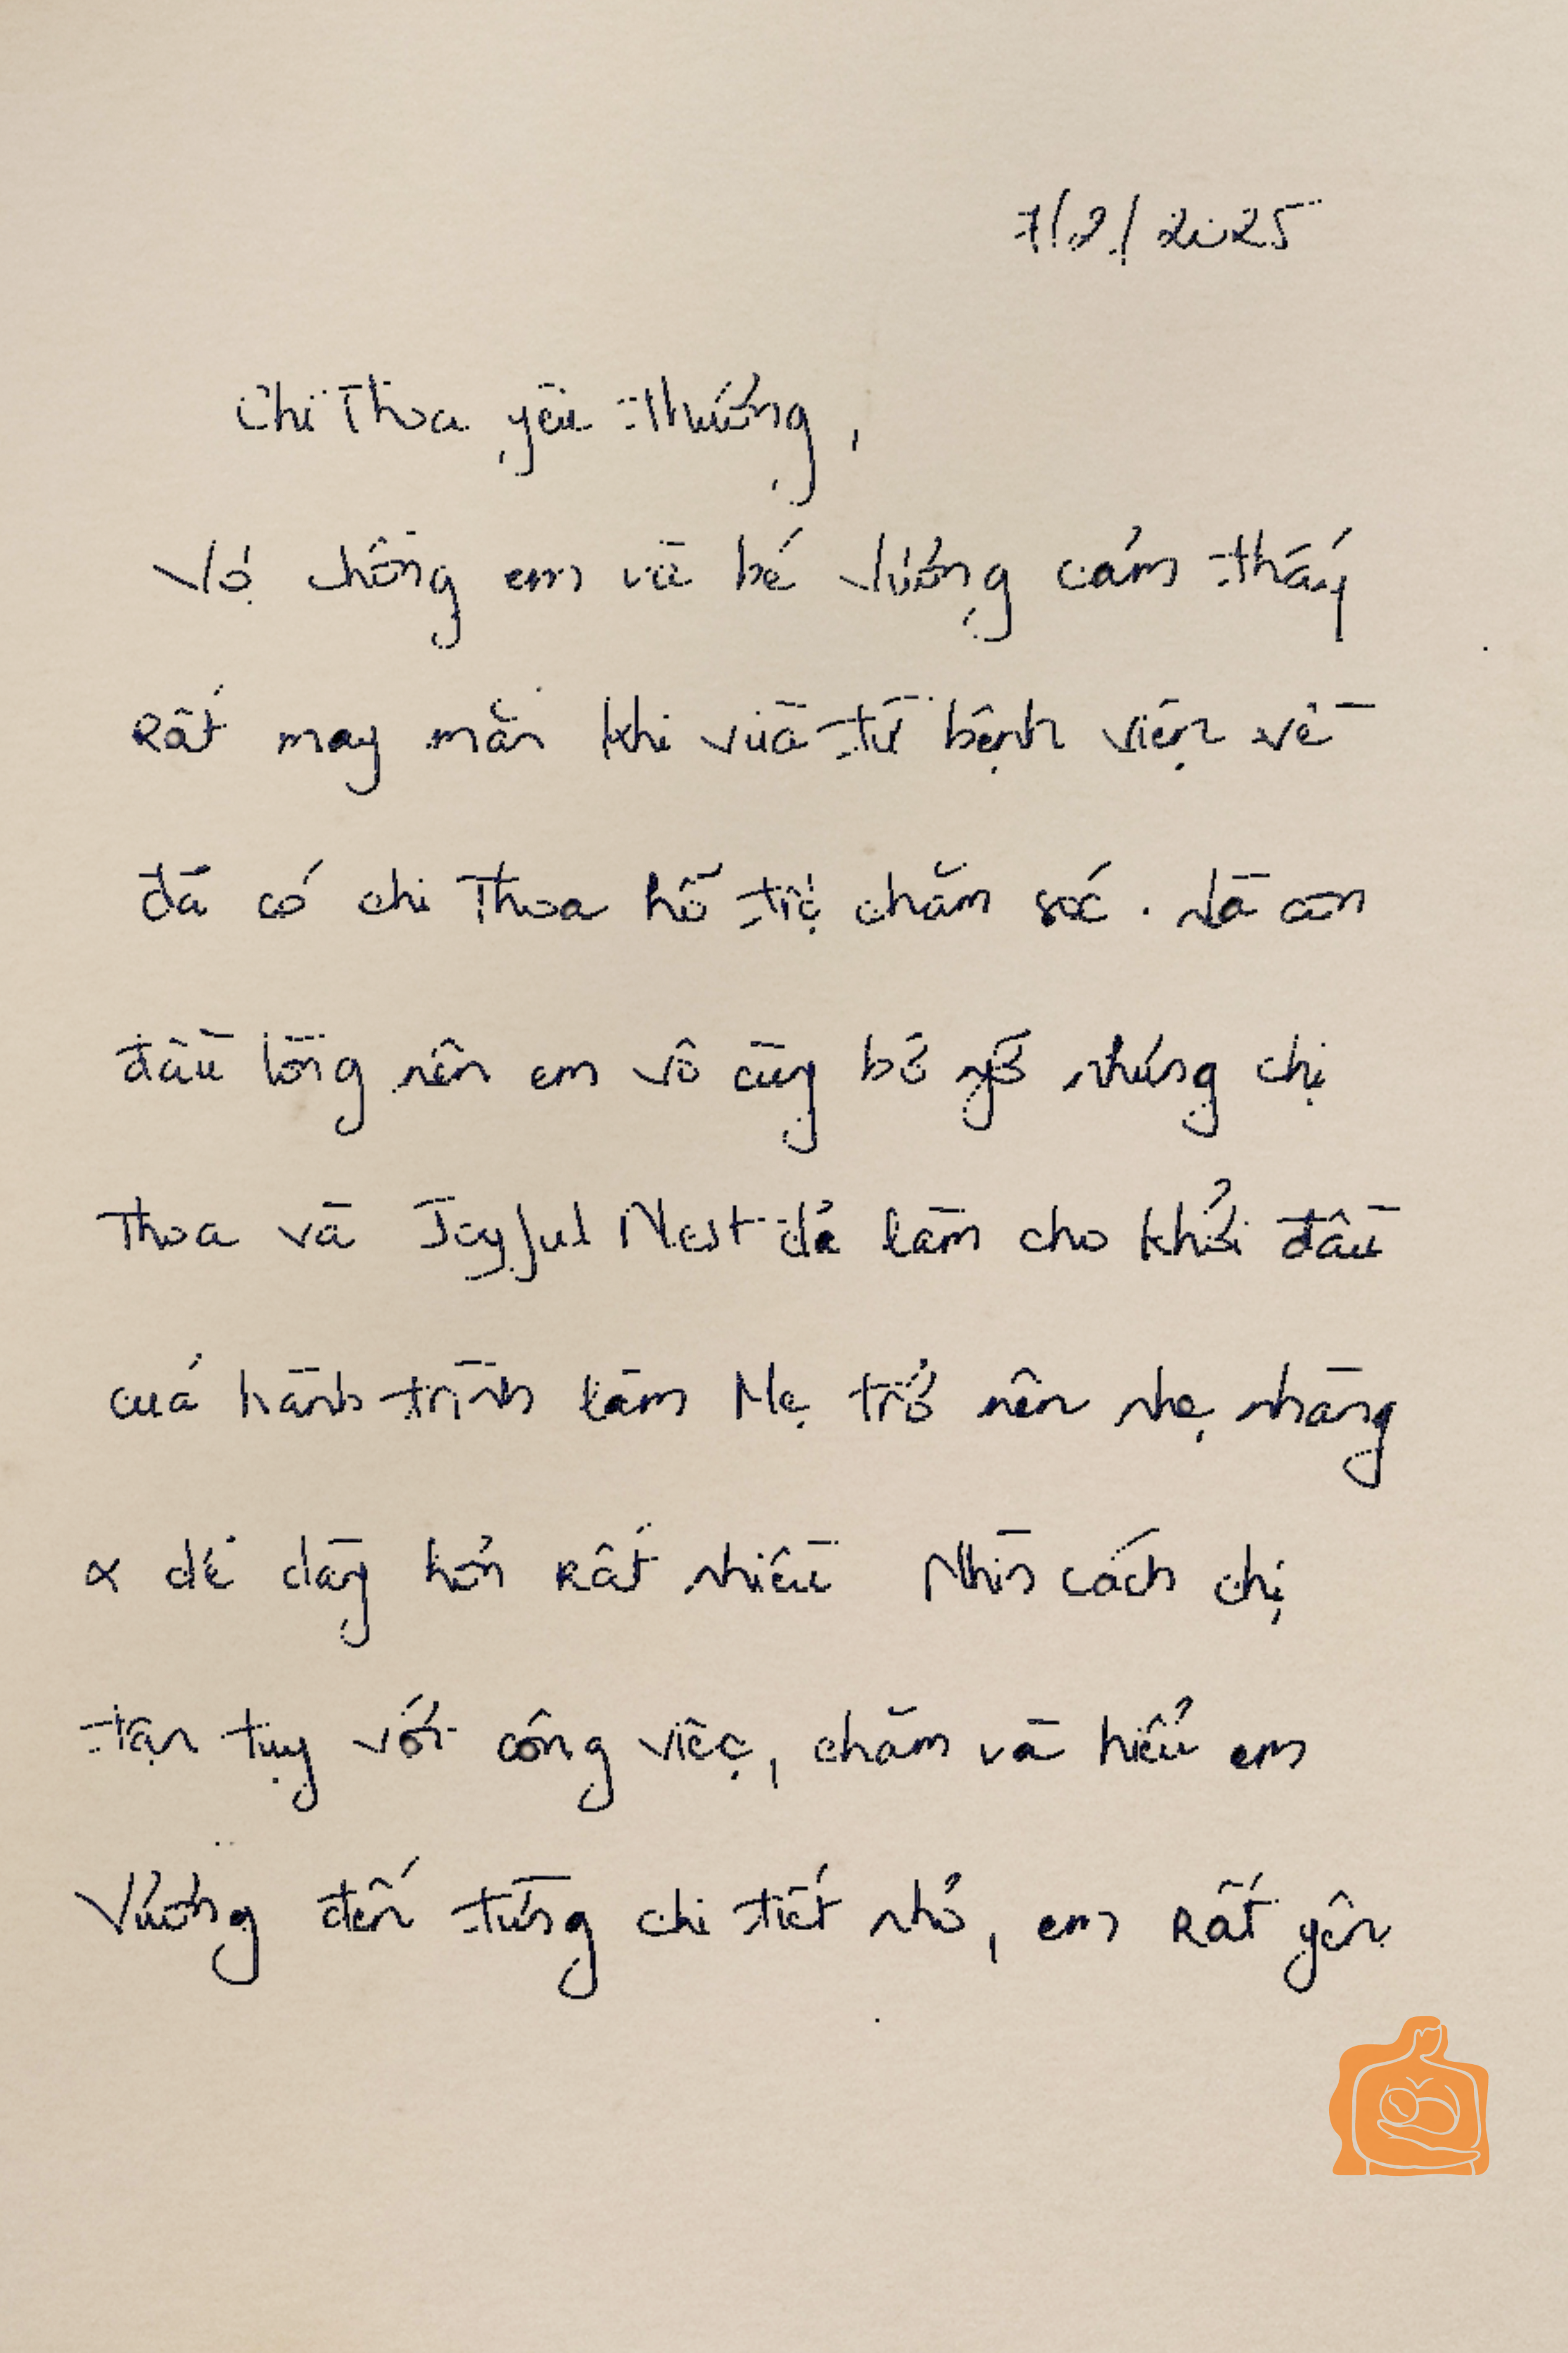 7/2/2025
Chị Thoa yêu thương,
Vợ chồng em và bé Vương cảm thấy
rất may mắn khi vừa từ bệnh viện về
đã có chị Thoa hỗ trợ chăm sóc. Là con
đầu lòng nên em vô cùng bỡ ngỡ nhưng chị
Thoa và Joyful Nest đã làm cho khởi đầu
của hành trình làm Mẹ trở nên nhẹ nhàng
& dễ dàng hơn rất nhiều Nhìn cách chị
tận tụy với công việc, chăm và hiểu em
Vương đến từng chi tiết nhỏ, em rất yên